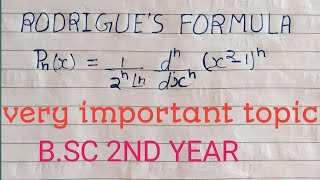 RODRIGUE'S FORMULA
Pn(x) = 1/(2^n ⌊n) d^n/dx^n (x²-1)^n
very important topic
B.SC 2ND YEAR